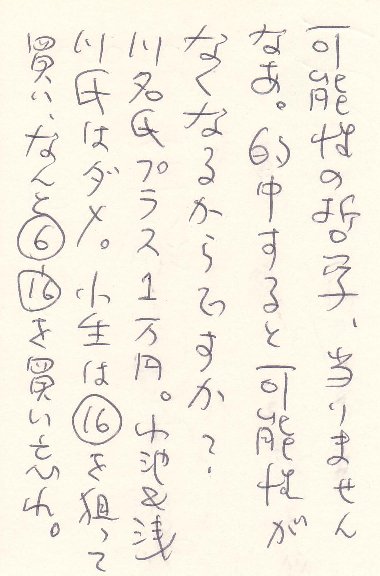 可能性の哲学、当りません
なあ。的中すると可能性が
なくなるからですか?
川名氏プラス1万円。小池&浅
川氏はダメ。小生は⑯を狙って
買い、なんと⑥⑯を買い忘れ。